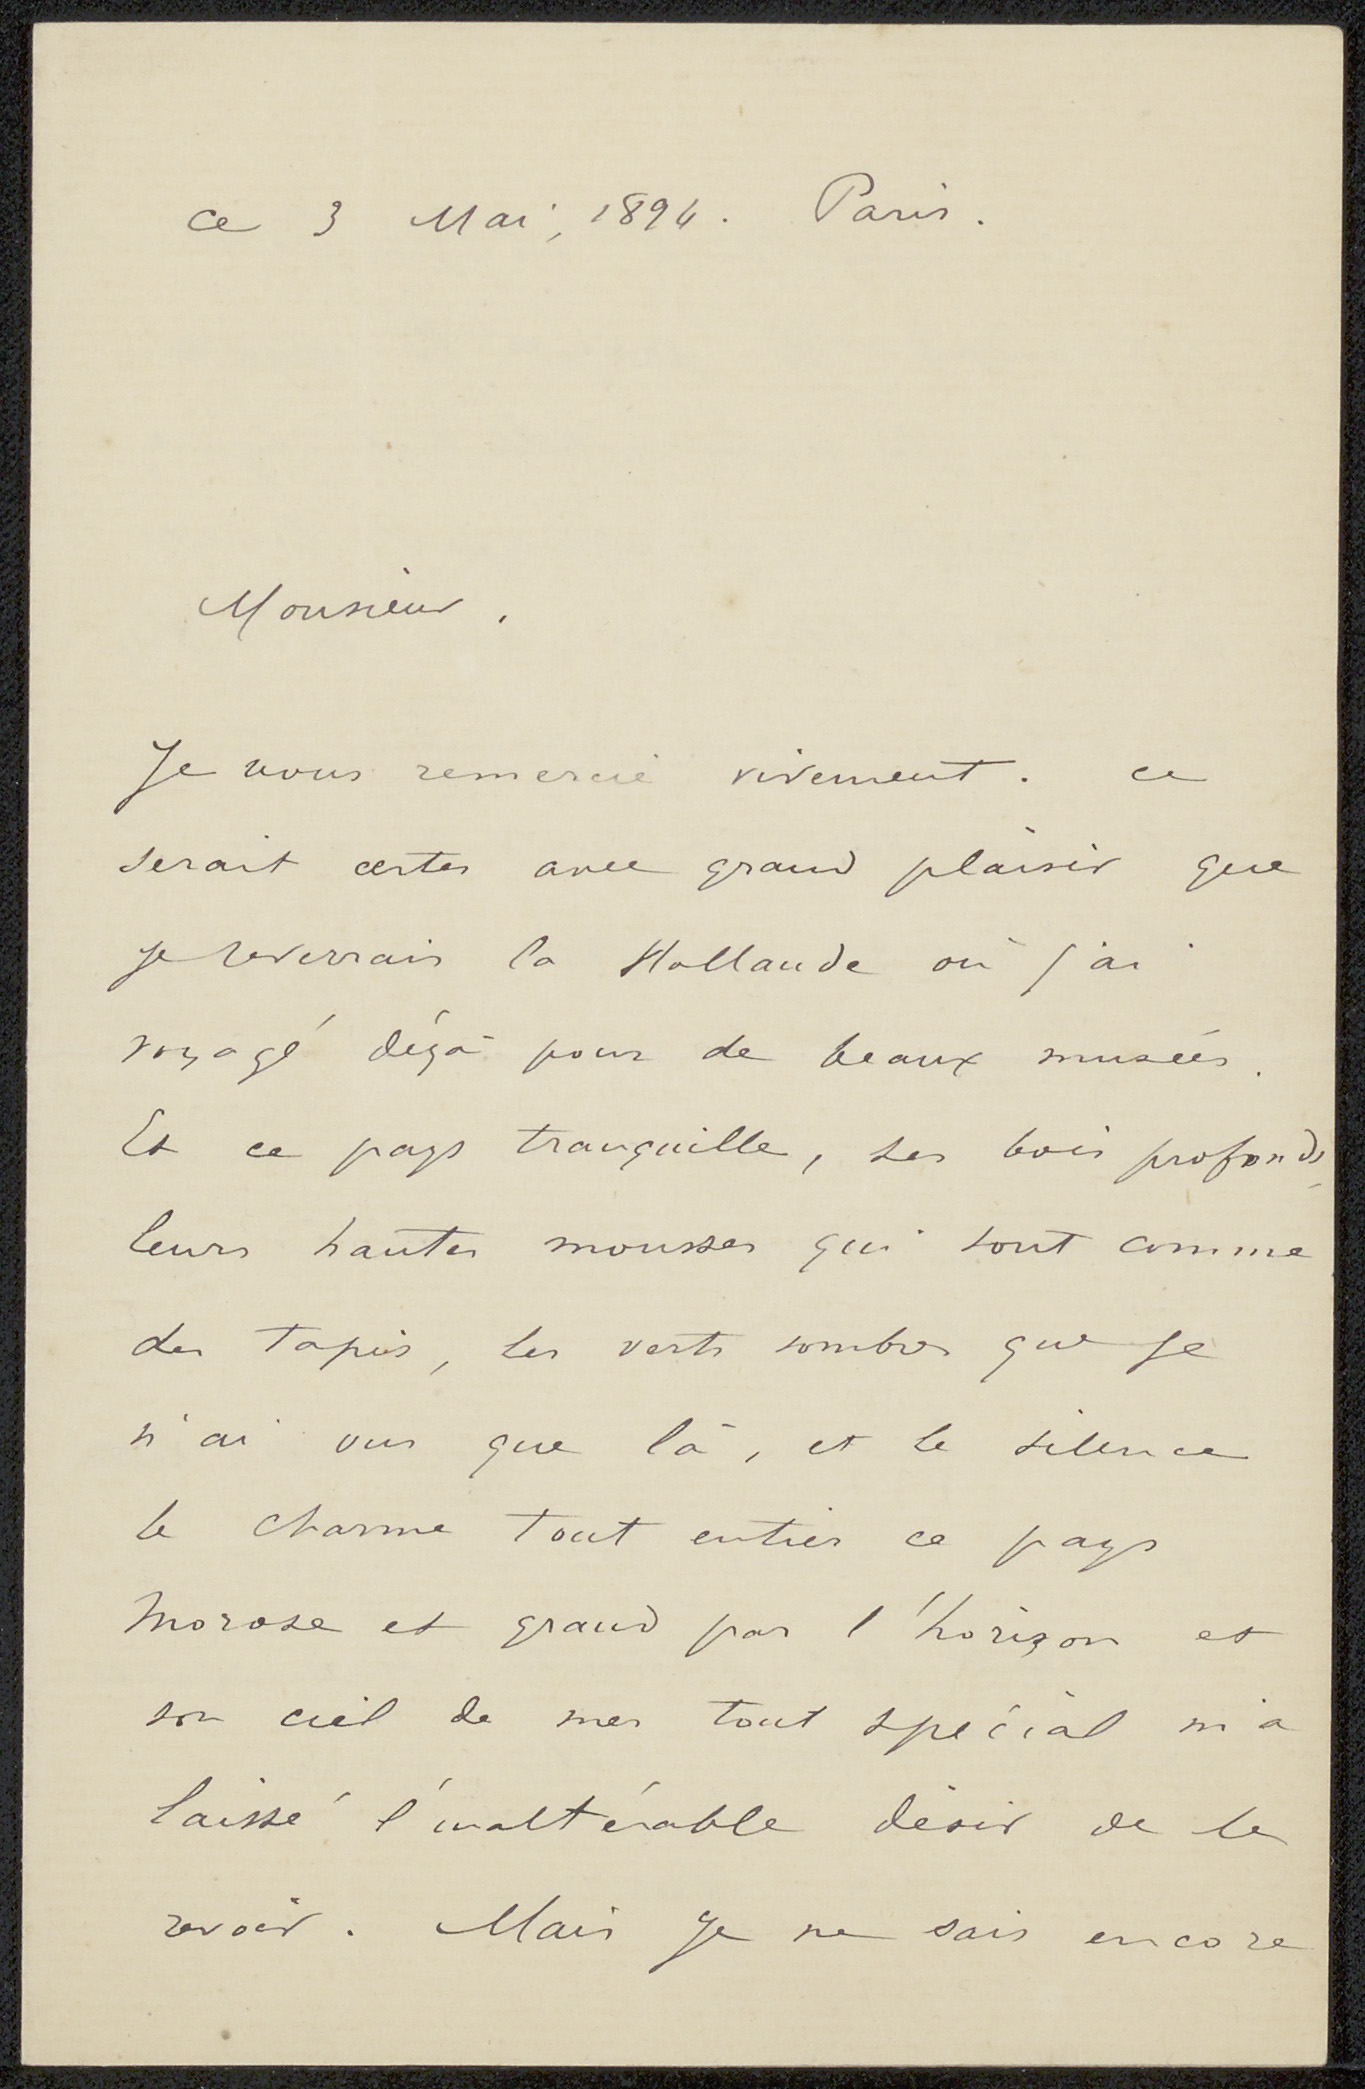 ce 3 Mai, 1894. Paris.
Monsieur,
Je vous remercie vivement. ce
serait certes avec grand plaisir que
je reverrais la Hollande où j'ai
voyagé déjà pour de beaux musées.
Et ce pays tranquille, ses bois profonds,
leurs hautes mousses qui sont comme
des tapis, les verts sombres que je
n'ai vus que là, et le silence
le charme tout entier ce pays
morose et grand par l'horizon et
son ciel de mer tout spécial m'a
laissé l'inaltérable désir de le
revoir. Mais je ne sais encore